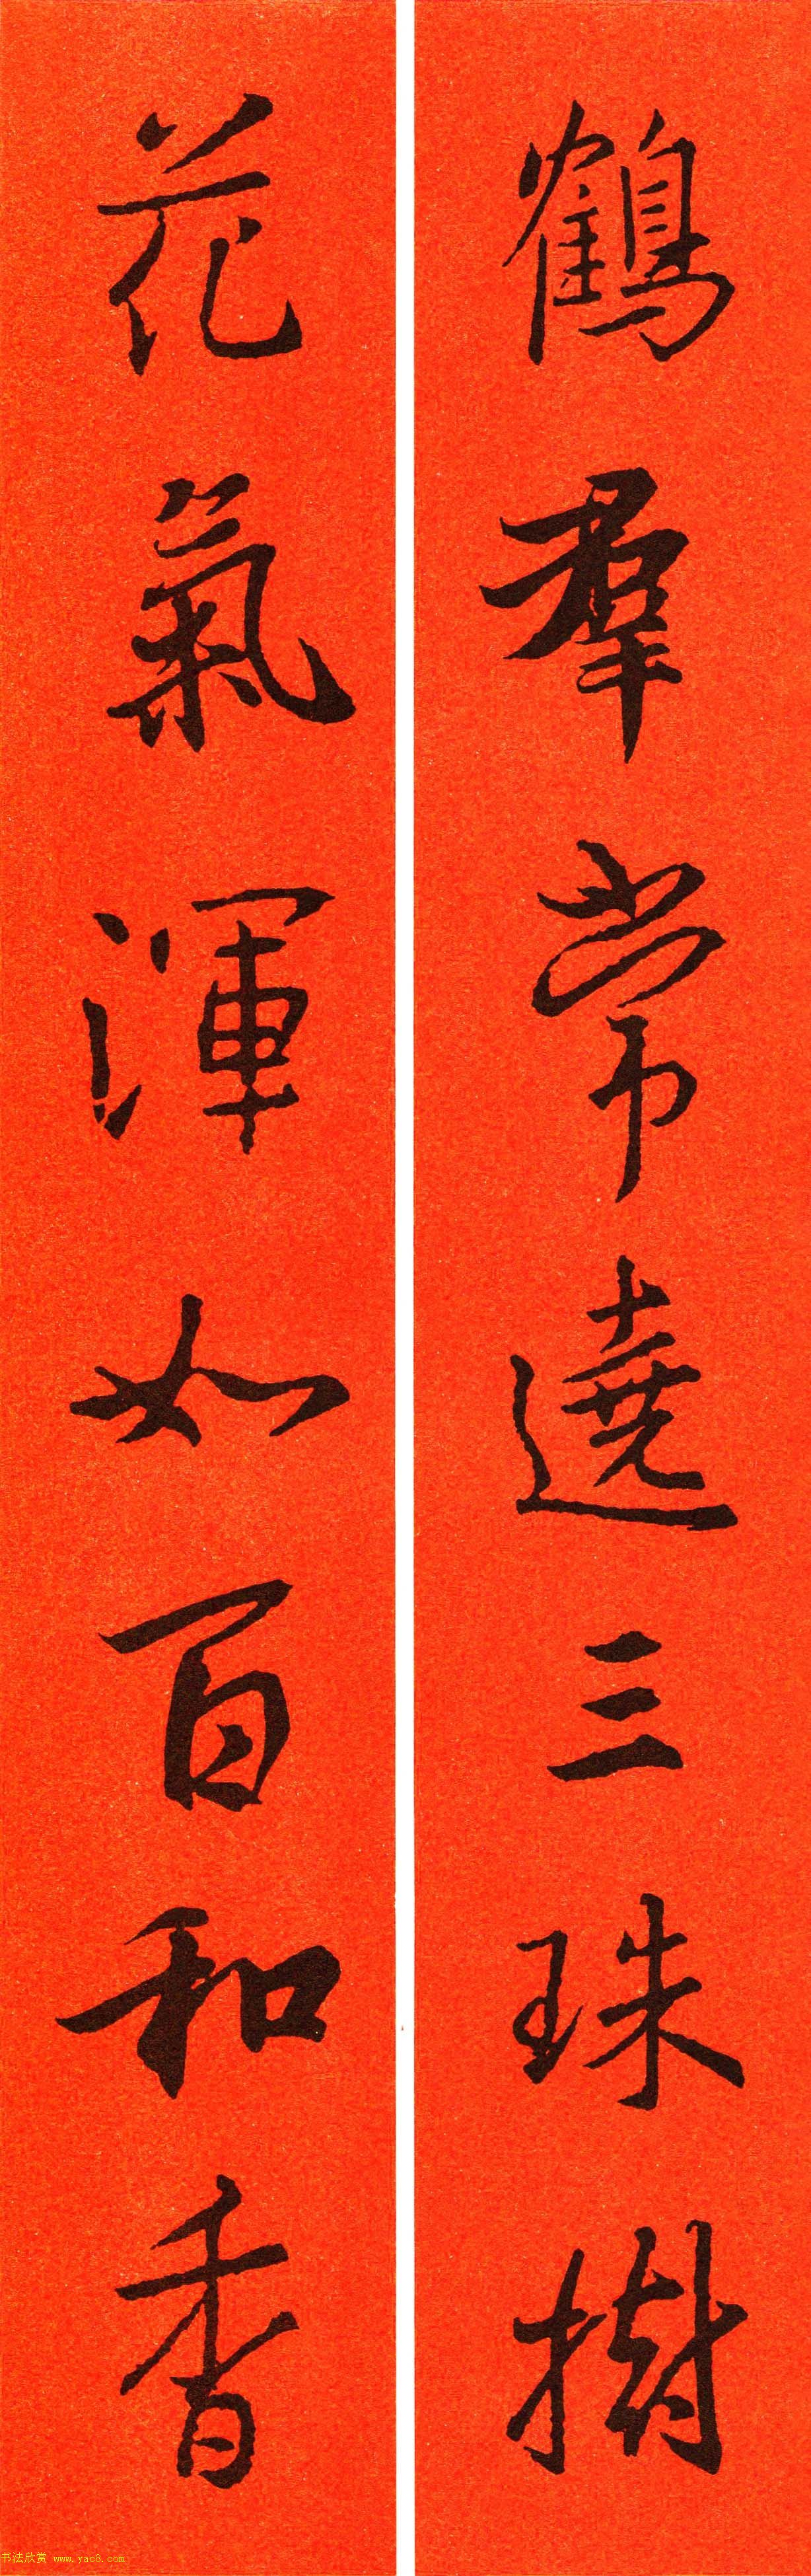 鶴羣常遶三珠樹
花氣渾如百和香
书法欣赏 www.yac8.com